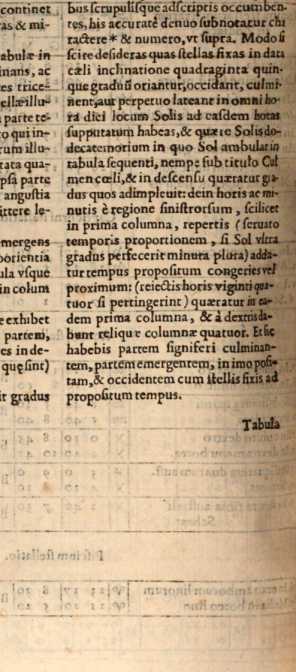 continet
ras & mi-
tabulæ in
inans, ac
es trice-
ellæ illu-
parte te-
o qui in-
rum illu-
tata qua-
psa parte
angustia
ittere le-
emergens
porientia
ula vsque
in colum
e exhibet
partem,
es in de-
quę sint)
it gradus
bus scrupulisque adscriptis occumben-
tes, his accuratè denuo subnotatur cha
ractere * & numero, vt supra. Modò si
scire desideras quas stellas fixas in data
cæli inclinatione quadraginta quin-
que graduũ oriantur, occidant, culmi-
nent, aut perpetuo lateant in omni ho-
ra dici locum Solis ad easdem horas
supputatum habeas, & quære Solis do-
decatemorium in quo Sol ambulat in
tabula sequenti, nempe sub titulo Cul
men cœli, & in descensu quæratur gra-
dus quos adimpleuit: dein horis ac mi-
nutis è regione sinistrorsum, scilicet
in prima columna, repertis (seruato
temporis proportionem, si Sol vltra
gradus perfecerit minuta plura) adda-
tur tempus propositum congeries vel
proximum: (reiectis horis viginti qua-
tuor si pertingerint) quæratur in ea-
dem prima columna, & à dextris da-
bunt reliquæ columnæ quatuor. Et sic
habebis partem signiferi culminan-
tem, partem emergentem, in imo posi-
tam, & occidentem cum stellis fixis ad
propositum tempus.
Tabula